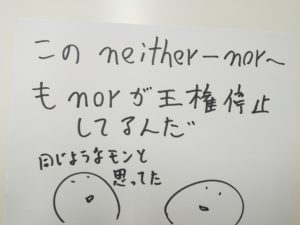 この neither－nor～
も norが王権停止
してるんだ〃
同じようなモンと
思ってた